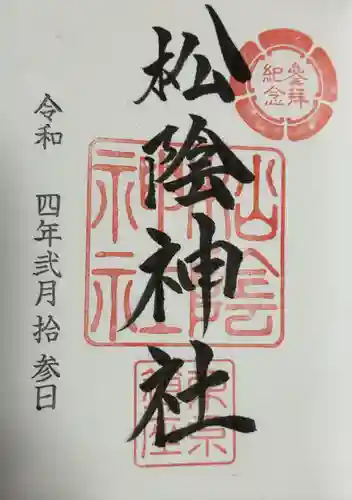 参拜
紀念
松陰神社
松陰
神社
東京
令和 四年 弐月 拾参日